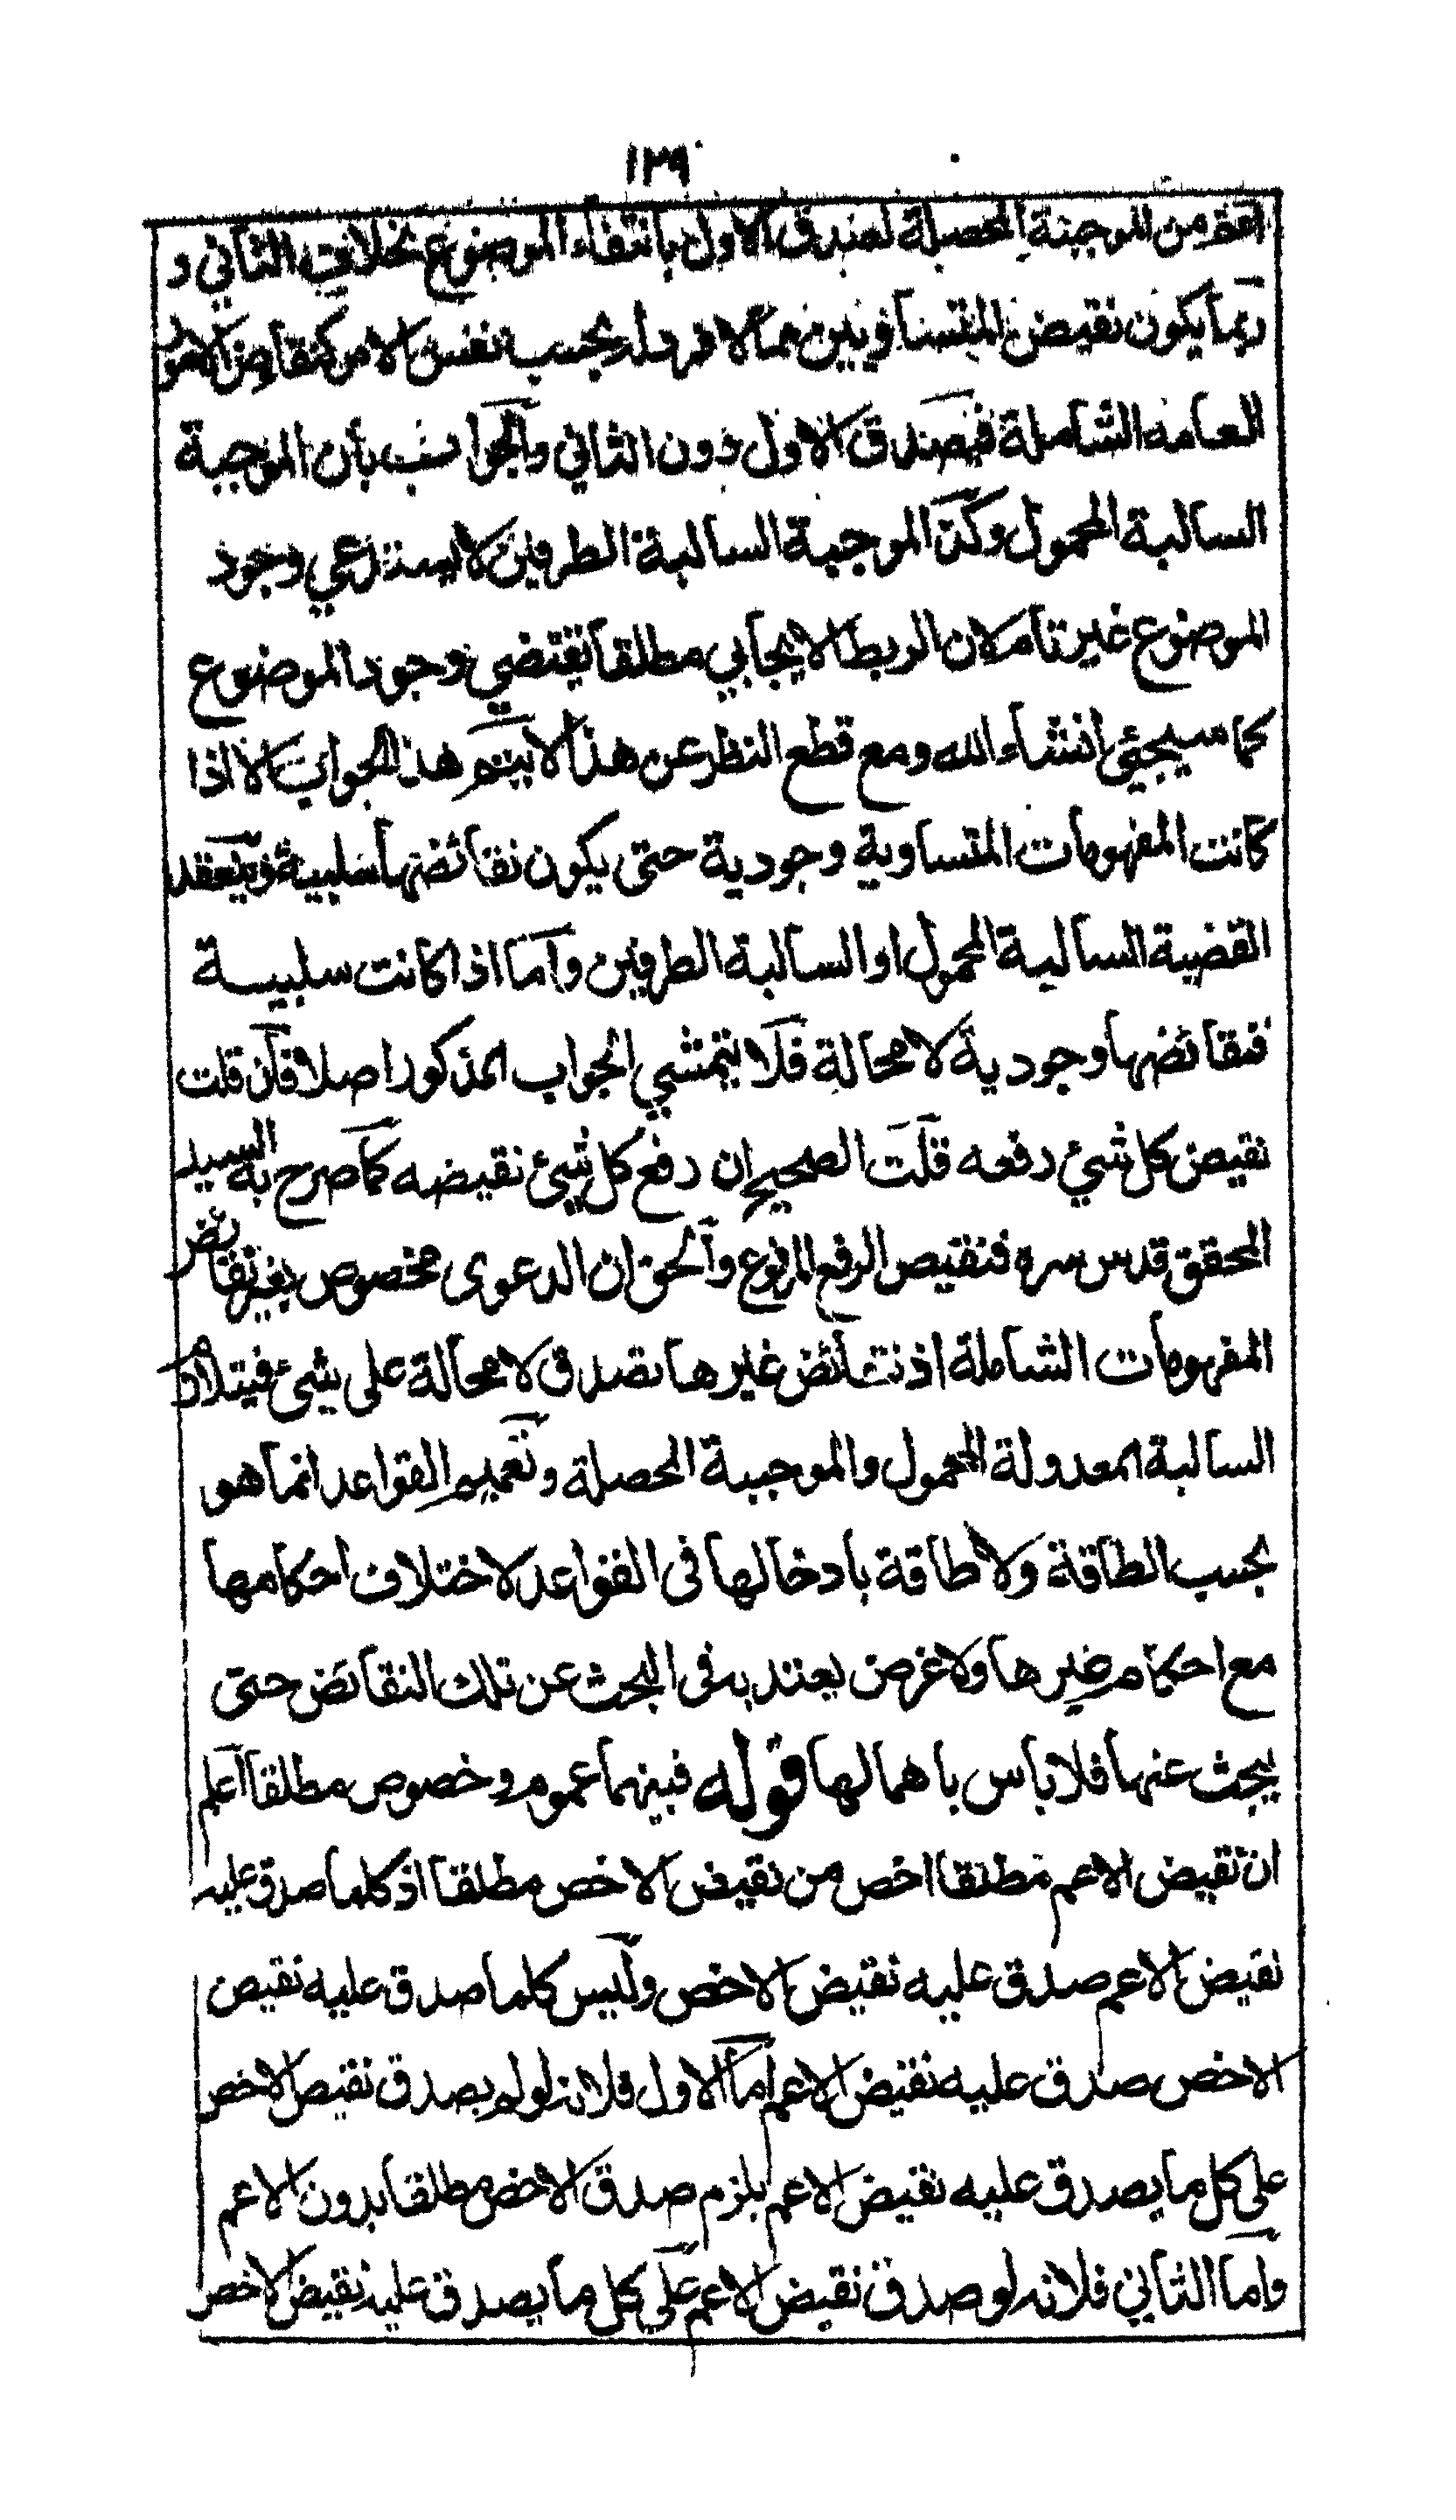 ١٣٩
اعم من الموجبة المحصلة لصدق الاول بانتفاء الموضوع بخلاف الثاني و
ربما يكون نقيض المتساويين مما لا فرد له بحسب نفس الامر كنقايض الامور
العامة الشاملة فيصدق الاول دون الثاني والجواب بأن الموجبة
السالبة المحمول وكذا الموجبة السالبة الطرفين لا يستدعي وجود
الموضوع غير تام لان الربط الايجابي مطلقا يقتضي وجود الموضوع
كما سيجئ انشاء الله ومع قطع النظر عن هذا لا يتم هذا الجواب الا اذا
كانت المفهومات المتساوية وجودية حتى يكون نقائضها سلبية وينعقد
القضية السالبة المحمول او السالبة الطرفين واما اذا كانت سلبية
فنقائضها وجودية لا محالة فلا يتمشي الجواب المذكور اصلا فان قلت
نقيض كل شيء رفعه قلت الصحيح ان رفع كل شيئ نقيضه كما صرح به السيد
المحقق قدس سره فنقيض الرفع المرفوع والحق ان الدعوى مخصوص بغير نقائض
المفهومات الشاملة اذ نقائض غيرها تصدق لا محالة على شئ فيتلازم
السالبة المعدولة المحمول والموجبة المحصلة وتعميم القواعد انما هو
بحسب الطاقة ولا طاقة بادخالها فى القواعد لاختلاف احكامها
مع احكام غيرها ولا غرض يعتد به فى البحث عن تلك النقائض حتى
يبحث عنها فلا باس باهمالها قوله فبينهما عموم وخصوص مطلقا اعلم
ان نقيض الاعم مطلقا اخص من نقيض الاخص مطلقا اذ كلما صدق عليه
نقيض الاعم صدق عليه نقيض الاخص وليس كلما صدق عليه نقيض
الاخص صدق عليه نقيض الاعم اما الاول فلانه لو لم يصدق نقيض الاخص
على كل ما يصدق عليه نقيض الاعم يلزم صدق الاخص مطلقا بدون الاعم
واما الثاني فلانه لو صدق نقيض الاعم على كل ما يصدق عليه نقيض الاخص